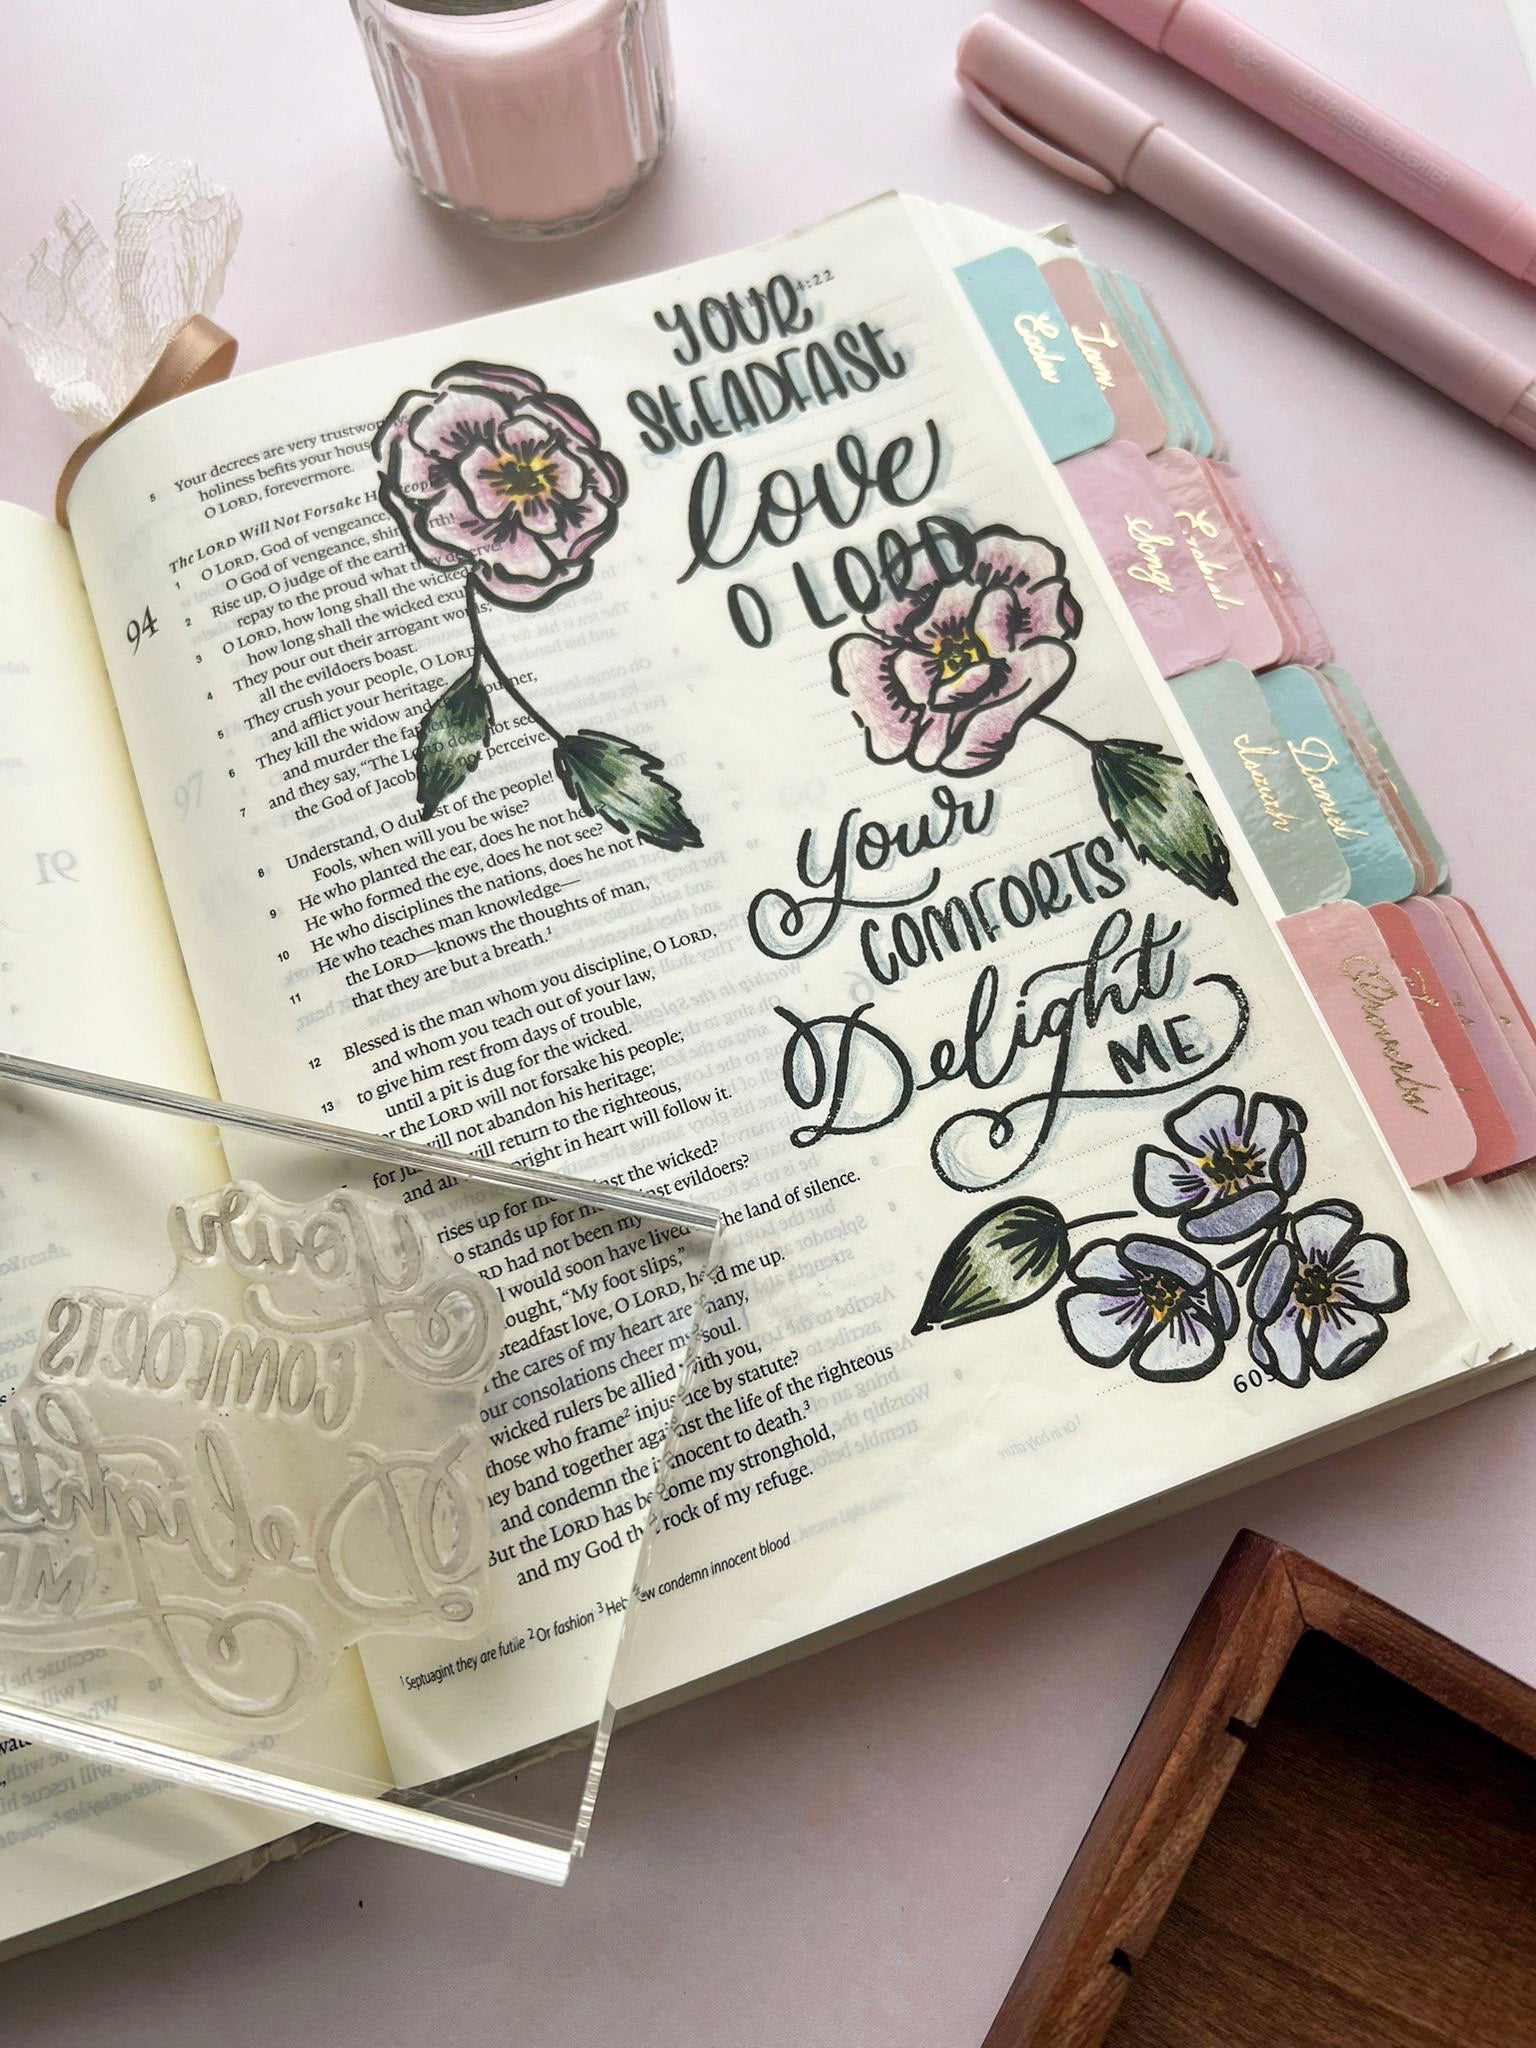 4:22
YOUR
STEADFAST
love
O LORD
Your
COMFORTS
Delight
ME
5 Your decrees are very trustworthy;
holiness befits your house,
O LORD, forevermore.
The LORD Will Not Forsake His People
94
1 O LORD, God of vengeance,
O God of vengeance, shine forth!
2 Rise up, O judge of the earth;
repay to the proud what they deserve!
3 O LORD, how long shall the wicked,
how long shall the wicked exult?
4 They pour out their arrogant words;
all the evildoers boast.
5 They crush your people, O LORD,
and afflict your heritage.
6 They kill the widow and the sojourner,
and murder the fatherless;
7 and they say, "The LORD does not see;
the God of Jacob does not perceive."
8 Understand, O dullest of the people!
Fools, when will you be wise?
9 He who planted the ear, does he not hear?
He who formed the eye, does he not see?
10 He who disciplines the nations, does he not
He who teaches man knowledge—
11 the LORD—knows the thoughts of man,
that they are but a breath.1
12 Blessed is the man whom you discipline, O LORD,
and whom you teach out of your law,
13 to give him rest from days of trouble,
until a pit is dug for the wicked.
the LORD will not forsake his people;
will not abandon his heritage;
for will return to the righteous,
and all upright in heart will follow it.
rises up for me against the wicked?
stands up for me against evildoers?
LORD had not been my
would soon have lived the land of silence.
thought, "My foot slips,"
steadfast love, O LORD, held me up.
the cares of my heart are many,
your consolations cheer my soul.
wicked rulers be allied with you,
those who frame2 injustice by statute?
They band together against the life of the righteous
and condemn the innocent to death.3
But the LORD has become my stronghold,
and my God the rock of my refuge.
1 Septuagint they are futile 2 Or fashion 3 Hebrew condemn innocent blood
Daniel
Isaiah
Song.
SOFT PASTEL HIGHLIGHTER
Your
COMFORTS
Delight
ME